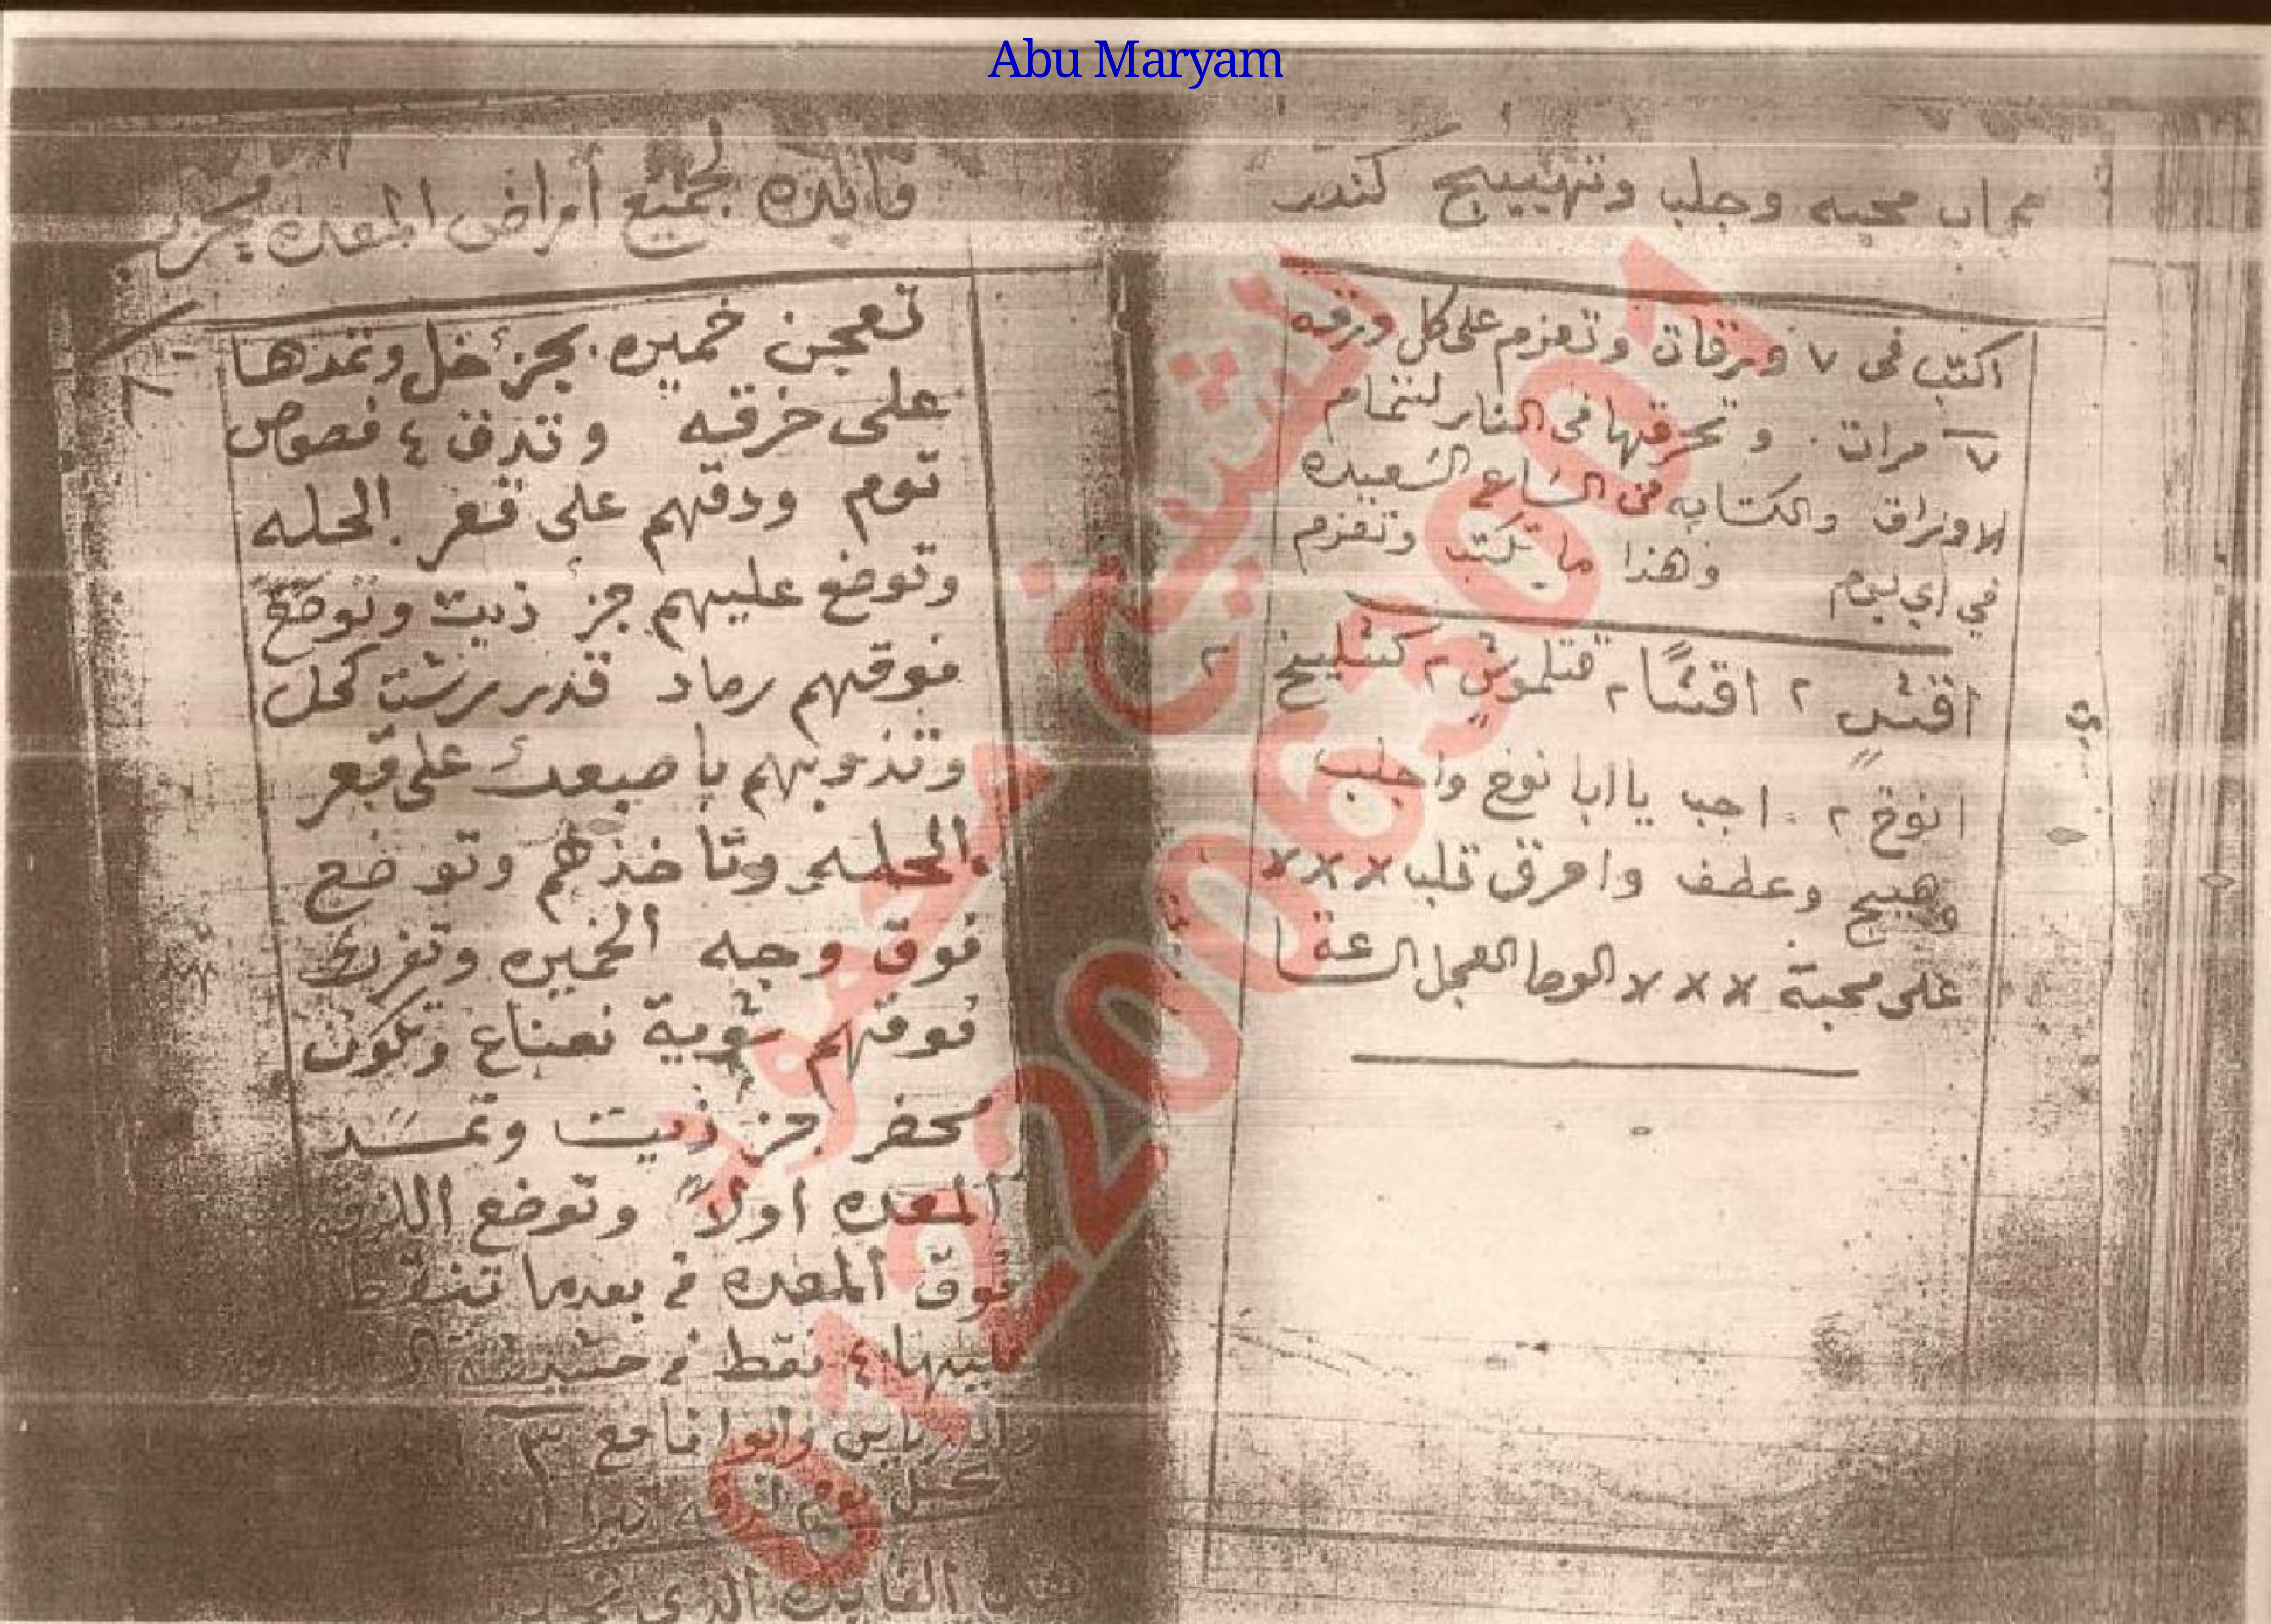 Abu Maryam
باب محبه وجلب وتهييج كندر
اكتب فى ٧ ورقات وتعزم على كل ورقه
٧ مرات . و تحرقها فى النار لتتمام
الاوراق والكتابه فى الساع السعيده
في اي يوم وهذا ما يكتب وتعزم
اقشٍ ٢ اقشًا ٢ قتلموشٍ ٢ كشليخ ٢
انوخ ٢ . اجب يا ابا نوخ واجلب
وهيج وعطف واحرق قلب × × ×
على محبة × × × الوحا العجل الساعة
فائده لجميع أمراض المعده مجرب
تعجن خميره بجزء خل وتمدها
على خرقه وتدق ٤ فصوص
توم ودقهم على قعر الحله
وتوضع عليهم جزء ذيت وتوضع
فوقهم رماد قدر رشت كحل
وتذوبهم باصبعك على قعر
الحله وتاخذهم وتوضع
فوق وجه الخميره وتفرك
فوقهم شوية نعناع وتكون
محضر جزء ذيت وتمسد
المعده اولاً وتوضع اللزق
فوق المعده م بعدما تنقط
عليها ٤ نقط م حشيشة
نافع
كل يوم
الفايده الذي
الشيخ محمود